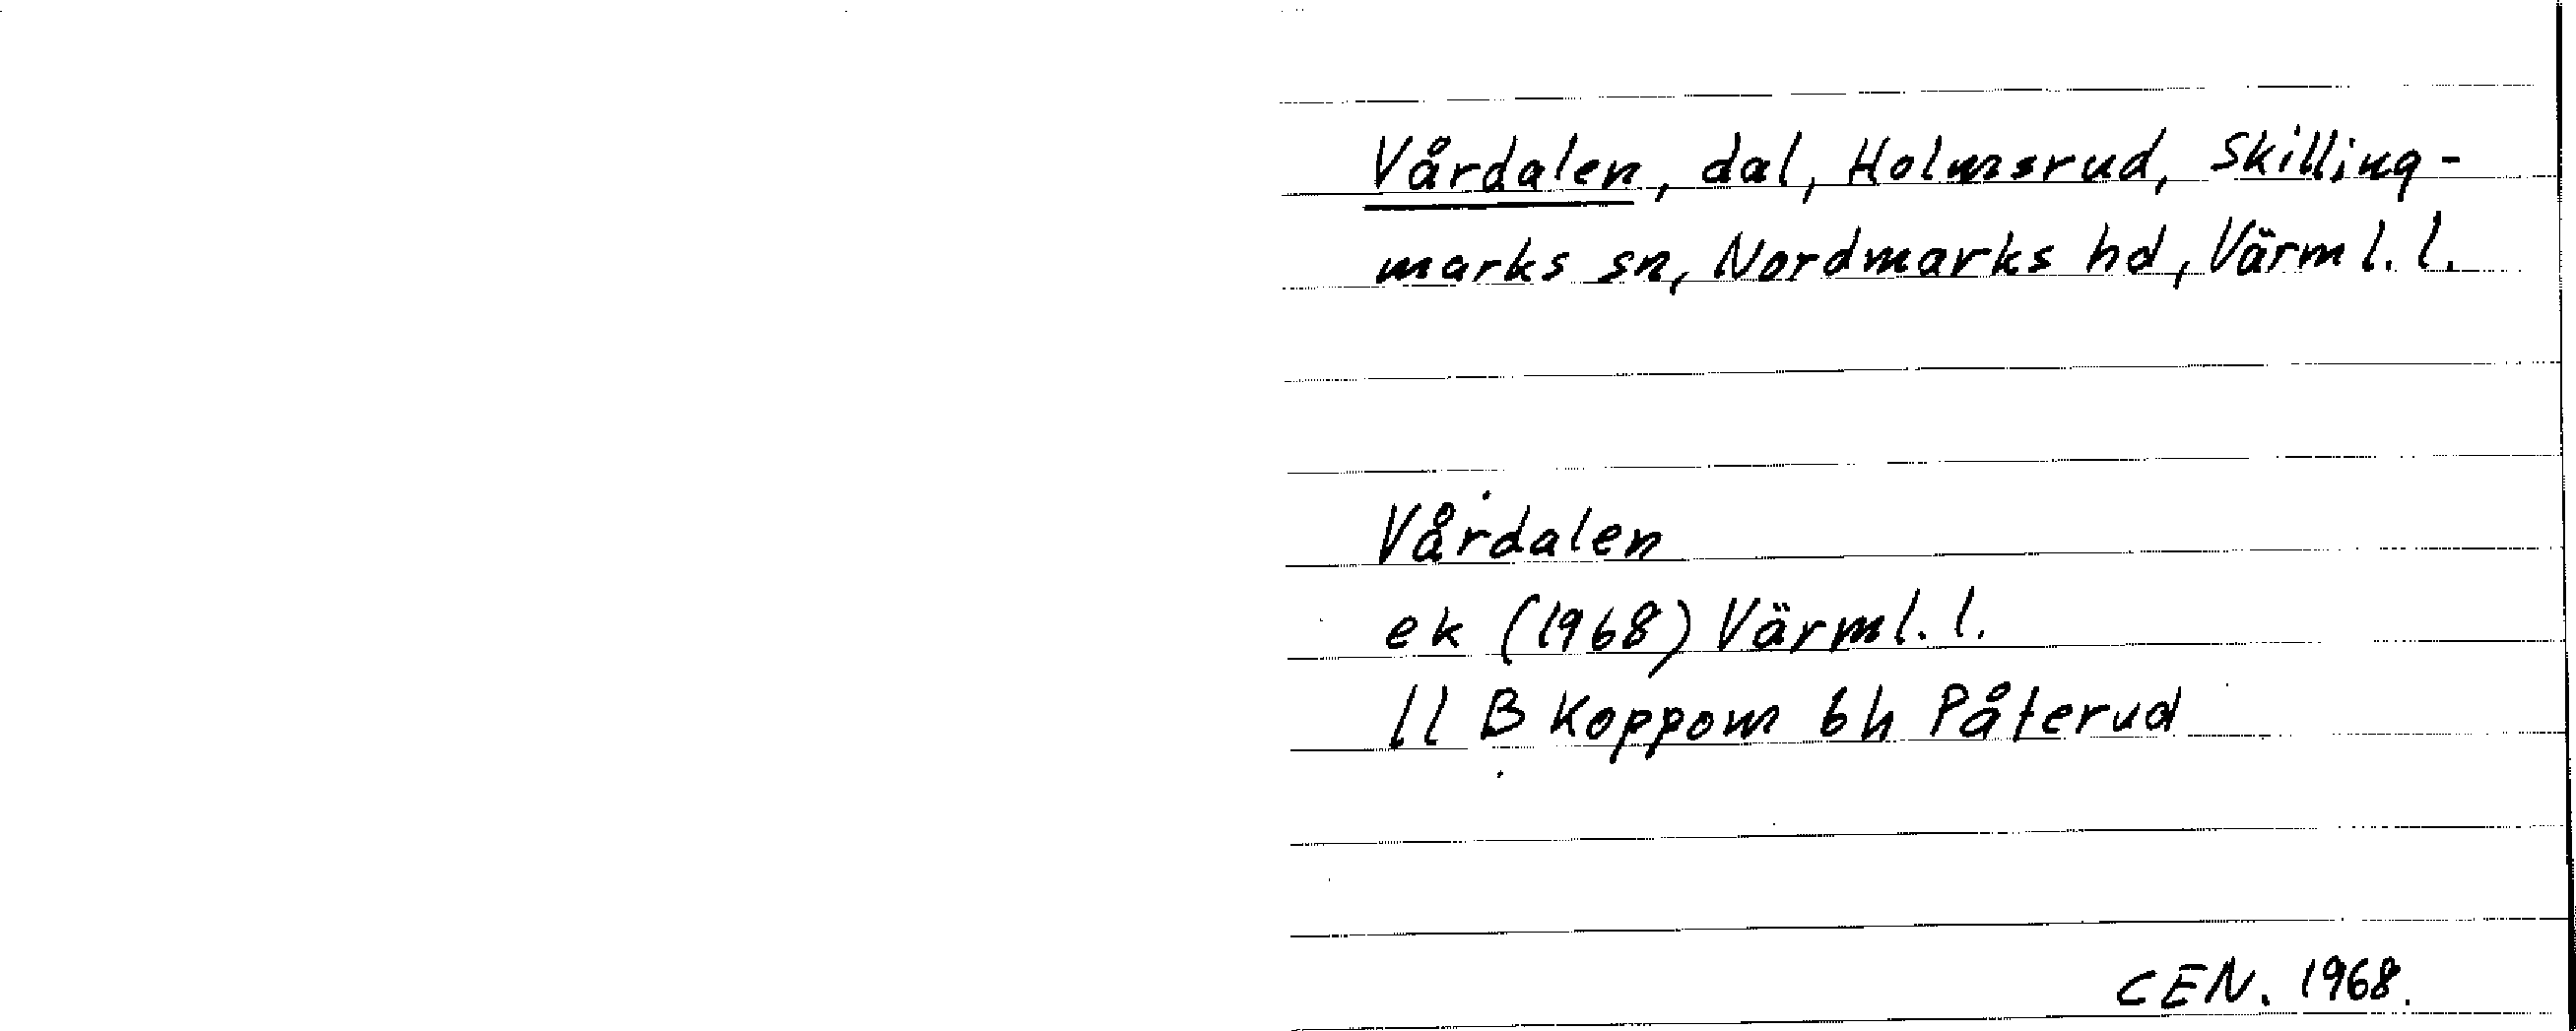 Vårdalen, dal, Holmsrud, Skilling-
marks sn, Nordmarks hd, Värml. l.
Vårdalen
ek (1968) Värml. l.
ll B Koppom bh Påterud
CEN. 1968.